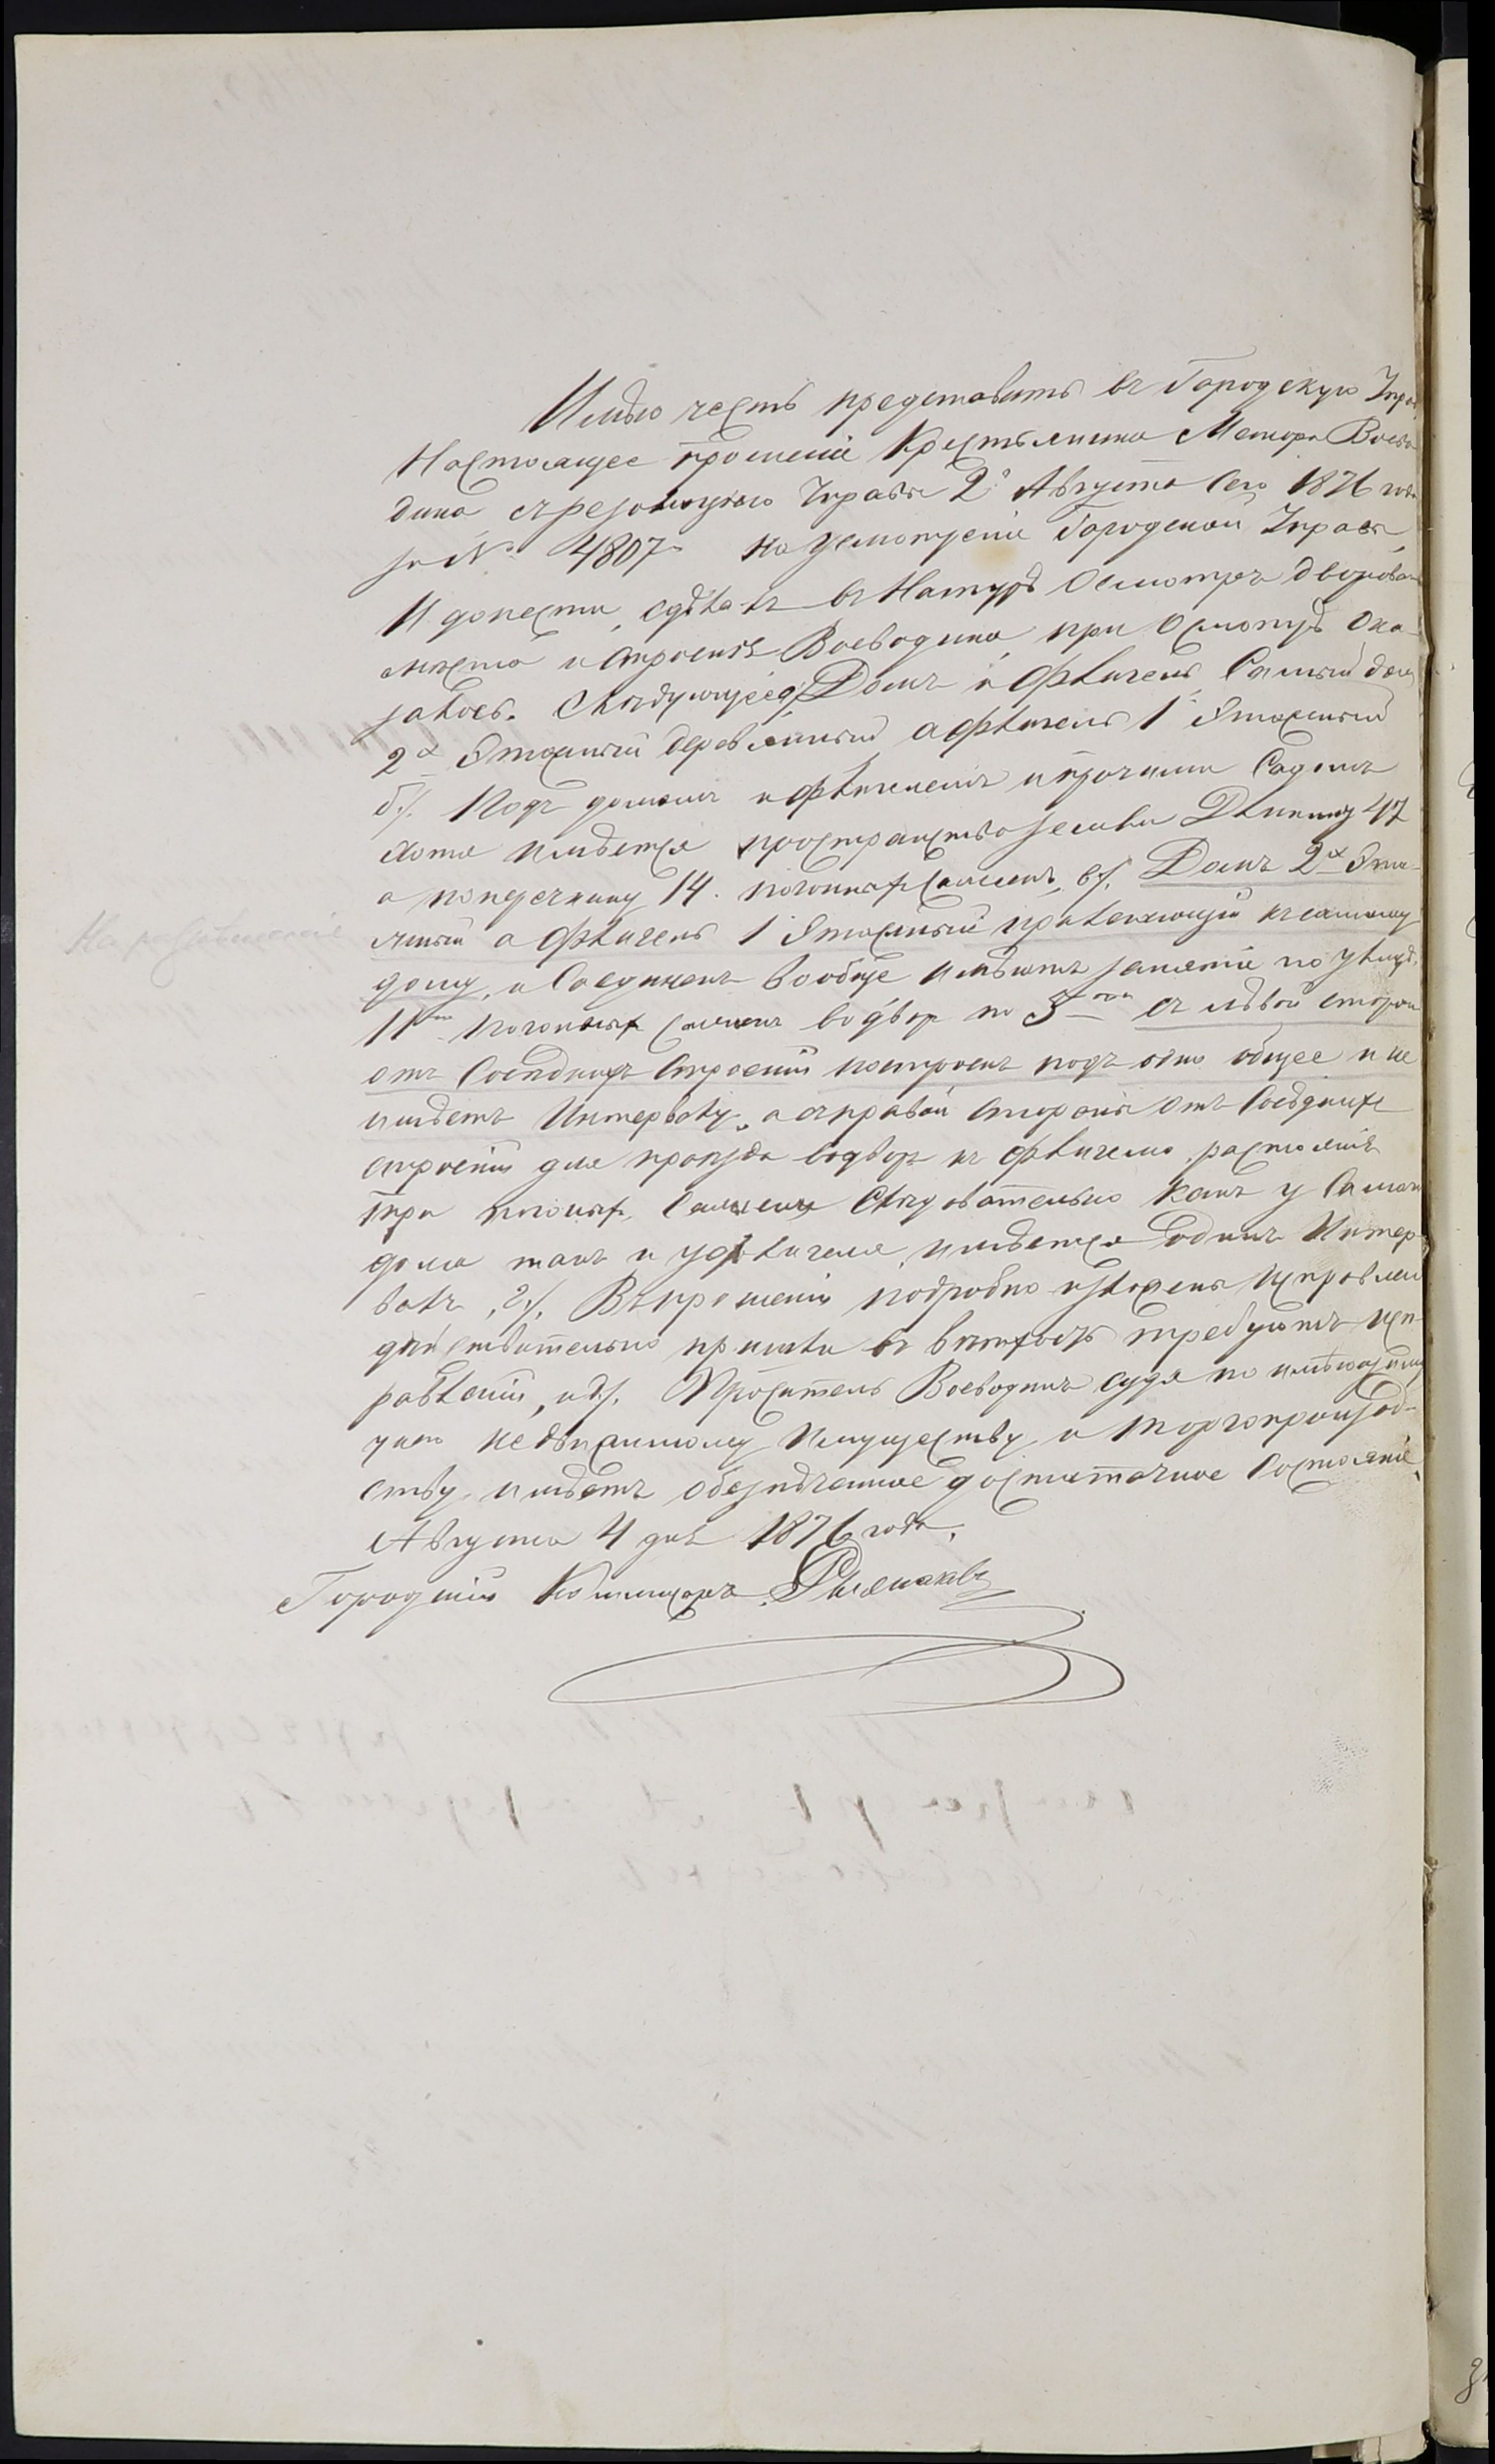 Имѣю честь представить въ Городскую Упра
Настоящее прошеніе Крестьянина Воево
дина съ резолюціею Управы 2º Августа Сего 1876 года
за № 4807 на усмотреніе Городской Управы
И донести, сдѣлалъ въ Натурѣ Осмотръ дворова
мѣста и строенія Воеводина, при Осмотрѣ Ока-
залось. Слѣдующее а/. Домъ и Флигель Самый дом
2х Этажный деревянный а флигель 1 Этажный
б/. Подъ домомъ и флигелемъ и прочими Садомъ
хотя имѣется пространство земли Длинику 47
а поперечнику 14. погонныхъ Саженъ, в/. Домъ 2х Эта-
жный а флигель 1 Этажный прилежащій къ самому
дому, и Соединенъ вообще имѣютъ занятіе по улицѣ,
11 погонныхъ саженъ во дворъ по 5 съ лѣвой сторон
отъ Сосѣднихъ Строеній построенъ подъ одно общее и не
имѣетъ Интервалу, а съ правой Стороны Отъ Сосѣднихъ
строеній для проезда во дворъ къ флигелю растояніе
три погоных, Саженъ Слѣдовательно какъ у Самаго
дома такъ и у флигеля, имѣется одинъ Интер
валъ, г/. Въ прошеніи подробно изложены Исправлен
дѣйствительно пришли въ ветхость требуютъ исп-
равленіи, и д/. Проситель Воеводинъ судя по имѣющему
у него недвижимому Имуществу и Торгопроизвод-
ству, имѣетъ обезпеченное достаточное Состояніе,
Августа 4 дня 1876 года.
Городской Комисаръ